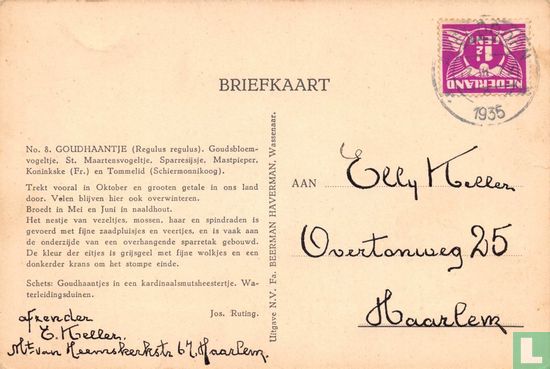 BRIEFKAART
No. 8. GOUDHAANTJE (Regulus regulus). Goudsbloem-
vogeltje, St. Maartensvogeltje, Sparresijsje, Mastpieper,
Koninkske (Fr.) en Tommelid (Schiermonnikoog).
Trekt vooral in Oktober en grooten getale in ons land
door. Velen blijven hier ook overwinteren.
Broedt in Mei en Juni in naaldhout.
Het nestje van vezeltjes, mossen, haar en spindraden is
gevoerd met fijne zaadpluisjes en veertjes, en is vaak aan
de onderzijde van een overhangende sparretak gebouwd.
De kleur der eitjes is grijsgeel met fijne wolkjes en een
donkerder krans om het stompe einde.
Schets: Goudhaantjes in een kardinaalsmutsheestertje. Wa-
terleidingsduinen.
Jos. Ruting.
afzender
E. Keller.
Mr van Heemskerkstr 67, Haarlem.
Uitgave N.V. Fa. BEERMAN HAVERMAN, Wassenaar.
1½
CENT
NEDERLAND
1935
AAN
Elly Keller
Overtonweg 25
Haarlem